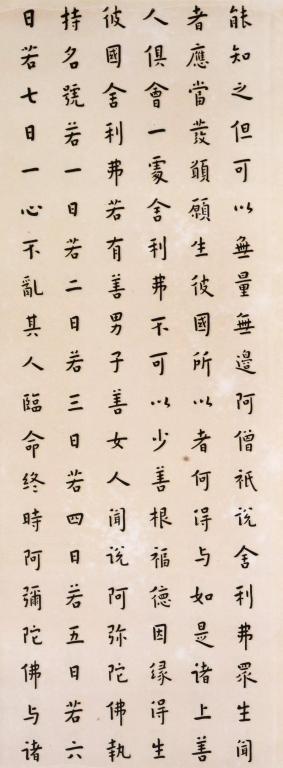 能知之但可以無量無邊阿僧祇说舍利弗眾生聞
者應當發願願生彼國所以者何得与如是诸上善
人俱會一處舍利弗不可以少善根福德因缘得生
彼國舍利弗若有善男子善女人聞说阿弥陀佛執
持名號若一日若二日若三日若四日若五日若六
日若七日一心不亂其人臨命终時阿彌陀佛与诸